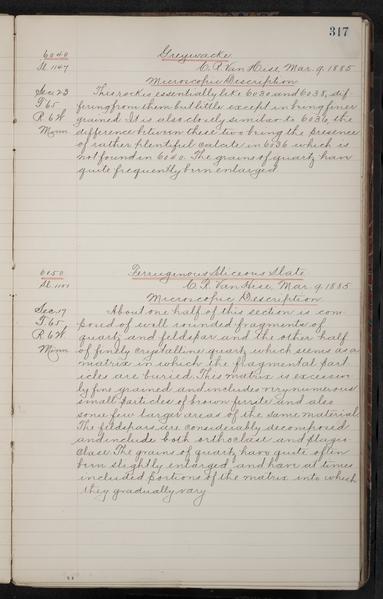 317
6040 Greywacke
Sl. 1147 C. R. Van Hise, Mar. 9. 1885
Microscopic Description
Sec. 23 This rock is essentially like 6030 and 6038, dif-
T. 65 fering from them but little except in being finer
R. 6 W. grained. It is also closely similar to 6036, the
Minn difference between these two being the presence
of rather plentiful calcite in 6036 which is
not found in 6040. The grains of quartz have
quite frequently been enlarged.
6050 Ferruginous Siliceous Slate
Sl. C. R. Van Hise, Mar. 9. 1885
Microscopic Description
Sec. 17 About one half of this section is com-
T. 65 posed of well rounded fragments of
R. 6 W. quartz and feldspar and the other half
Minn of finely crystalline quartz which seems as a
matrix in which the fragmental part-
icles are buried. This matrix is excessive-
ly fine grained and includes very numerous
small particles of brown ferrite and also
some few larger areas of the same material.
The feldspars are considerably decomposed
and include both orthoclase and plagio-
clase. The grains of quartz have quite often
been slightly enlarged and have at times
included portions of the matrix into which
they gradually vary